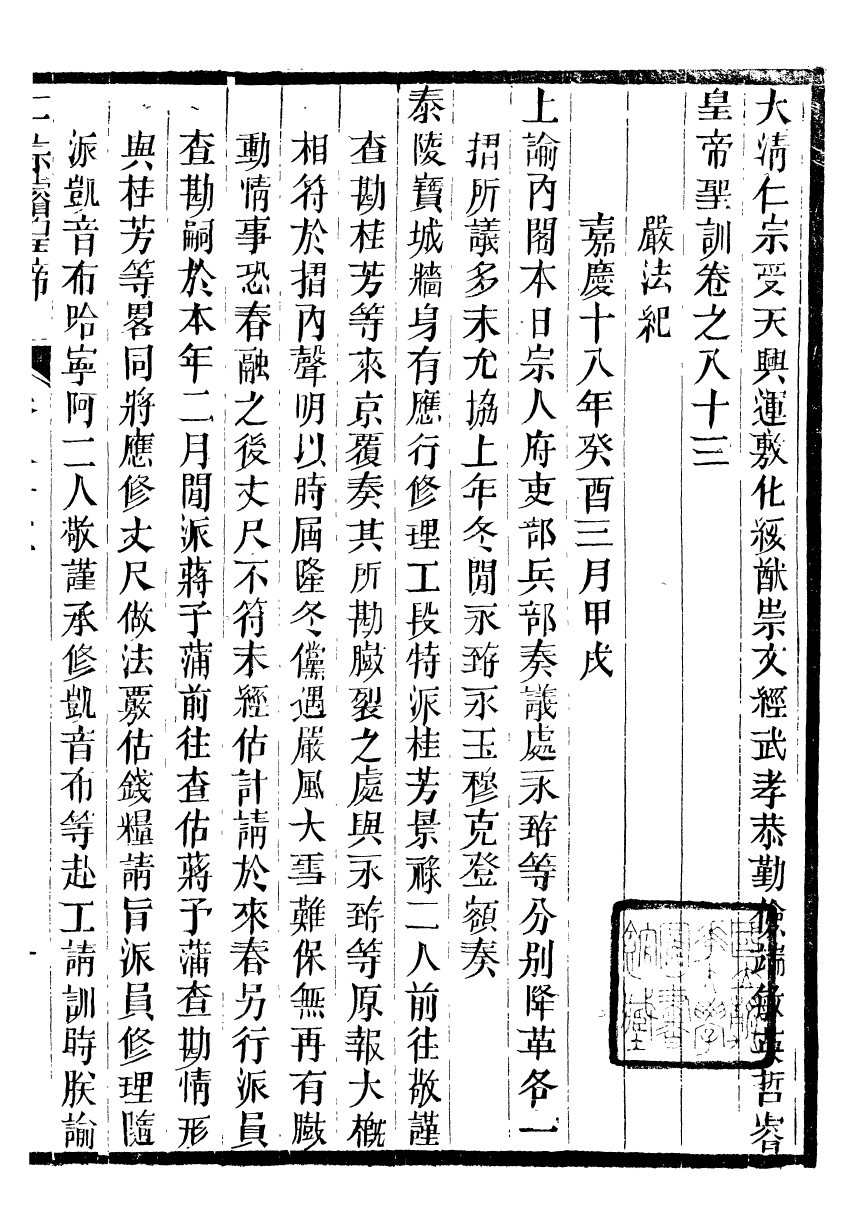 大清仁宗受天興運敷化綏猷崇文經武孝恭勤儉端敏英哲睿
皇帝聖訓卷之八十三
嚴法紀
嘉慶十八年癸酉三月甲戌
上諭內閣本日宗人府吏部兵部奏議處永𤨕等分別降革各一
摺所議多未允協上年冬閒永𤨕永玉穆克登額奏
泰陵寶城牆身有應行修理工段特派桂芳景祿二人前往敬謹
查勘桂芳等來京覆奏其所勘臌裂之處與永𤨕等原報大槪
相符於摺內聲明以時屆隆冬儻遇嚴風大雪難保無再有臌
動情事恐春融之後丈尺不符未經估計請於來春另行派員
查勘嗣於本年二月閒派蔣予蒲前往查估蔣予蒲查勘情形
與桂芳等畧同將應修丈尺做法覈估錢糧請旨派員修理隨
派凱音布哈寧阿二人敬謹承修凱音布等赴工請訓時朕諭
仁宗睿皇帝